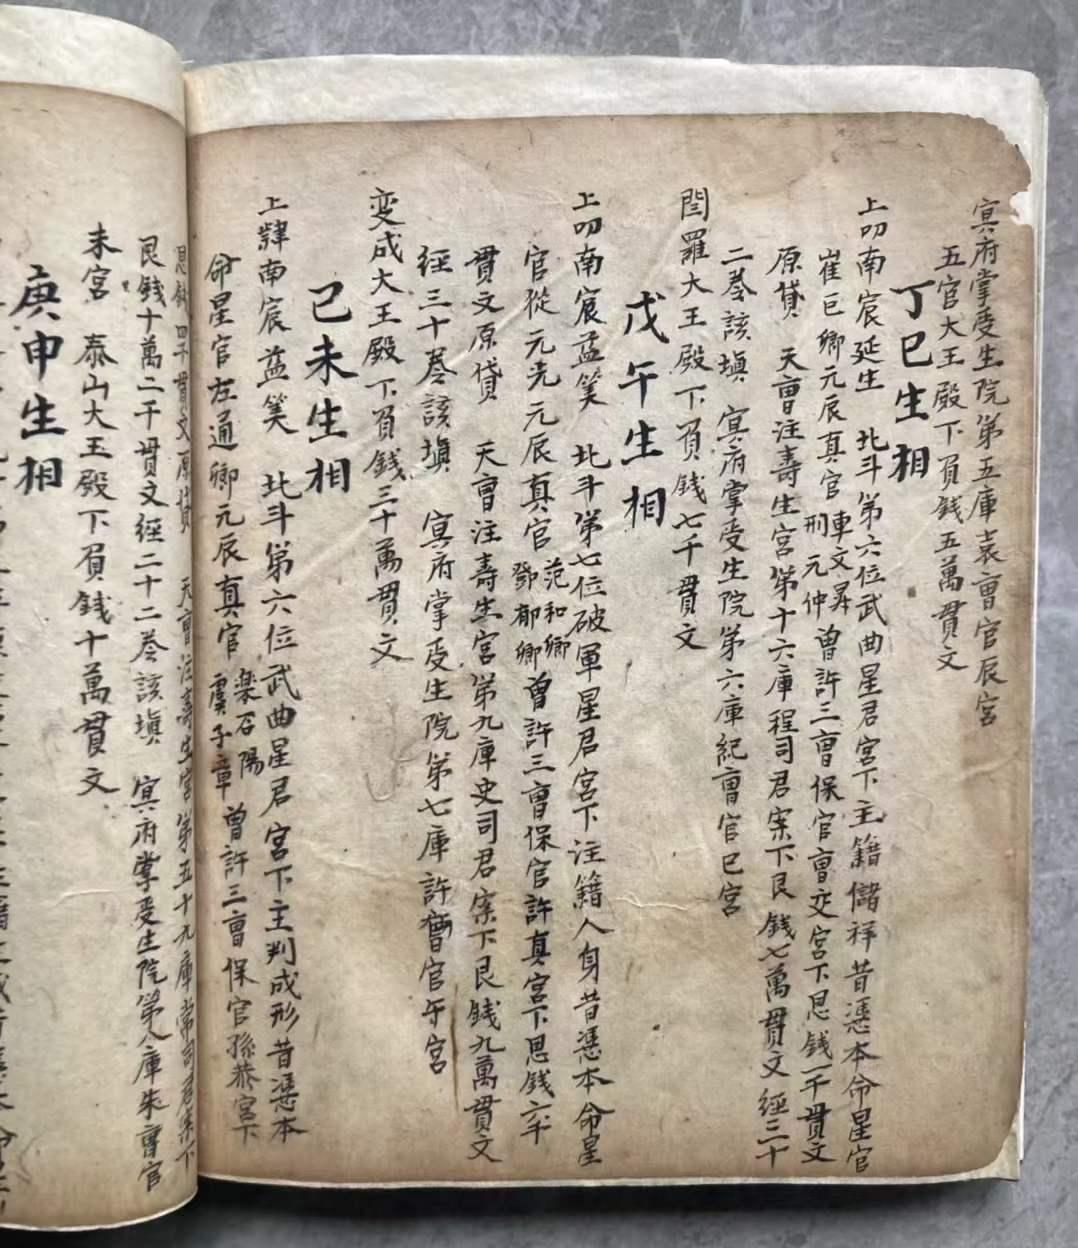 冥府掌受生院第五庫袁曺官辰宮
五官大王殿下負錢五萬貫文
丁巳生相
上叩南宸延生　北斗第六位武曲星君宮下主籍儲祥昔憑本命星官
崔巨卿元辰真官車文昇刑元仲曾許三曺保官曺交宮下恩錢一千貫文
原貸　天曺注壽生宮第十六庫程司君案下艮錢七萬貫文經三十
二卷該填　冥府掌受生院第六庫紀曺官巳宮
閻羅大王殿下負錢七千貫文
戊午生相
上叩南宸孟筭　北斗第七位破軍星君宮下注籍人身昔憑本命星
官從元光元辰真官范和卿鄧郁卿曾許三曺保官許真宮下恩錢六千
貫文原貸　天曺注壽生宮第九庫史司君案下艮錢九萬貫文
經三十卷該填　冥府掌受生院第七庫許曺官午宮
变成大王殿下負錢三十萬貫文
己未生相
上肆南宸益筭　北斗第六位武曲星君宮下主判成形昔憑本
命星官左通卿元辰真官栾石陽虞子章曾許三曺保官孫恭宮下
恩錢四千貫文原貸　天曺注壽生宮第五十九庫常司君案下
艮錢十萬二千貫文經二十二卷該填　冥府掌受生院第八庫朱曺官
未宮　泰山大王殿下負錢十萬貫文
庚申生相